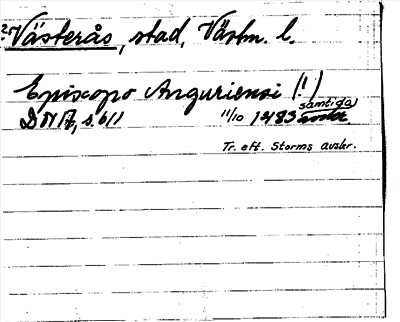 ? Västerås, stad, Västm. l.
Episcopo Anguriensi (!)
samtida
DN 17, s. 611 11/10 1483 avskr.
Tr. eft. Storms avskr.